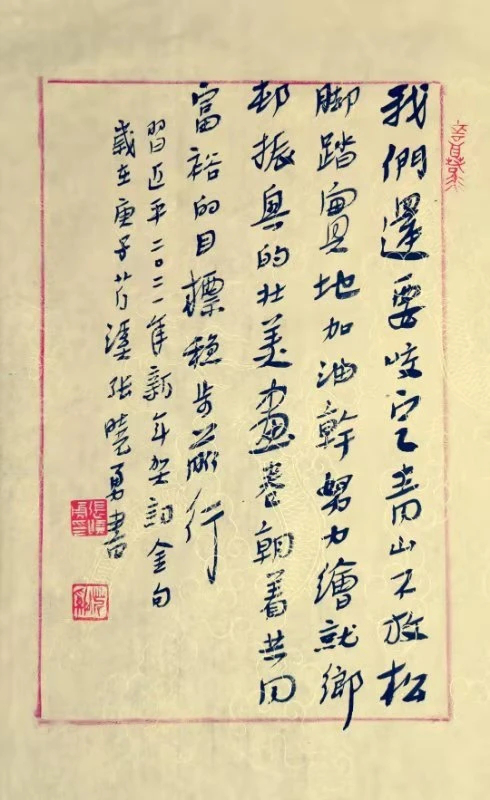 我們還要咬定青山不放松
脚踏實地加油幹努力繪就鄉
邨振興的壮美畫卷朝着共同
富裕的目標稳步前行
習近平二〇二一年新年贺詞金句
歲在庚子溪張曉勇書